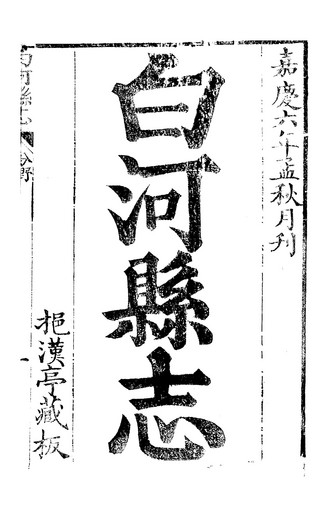 嘉慶六年孟秋月刊
白河縣志
挹漢亭藏板
白河縣志
分野
一